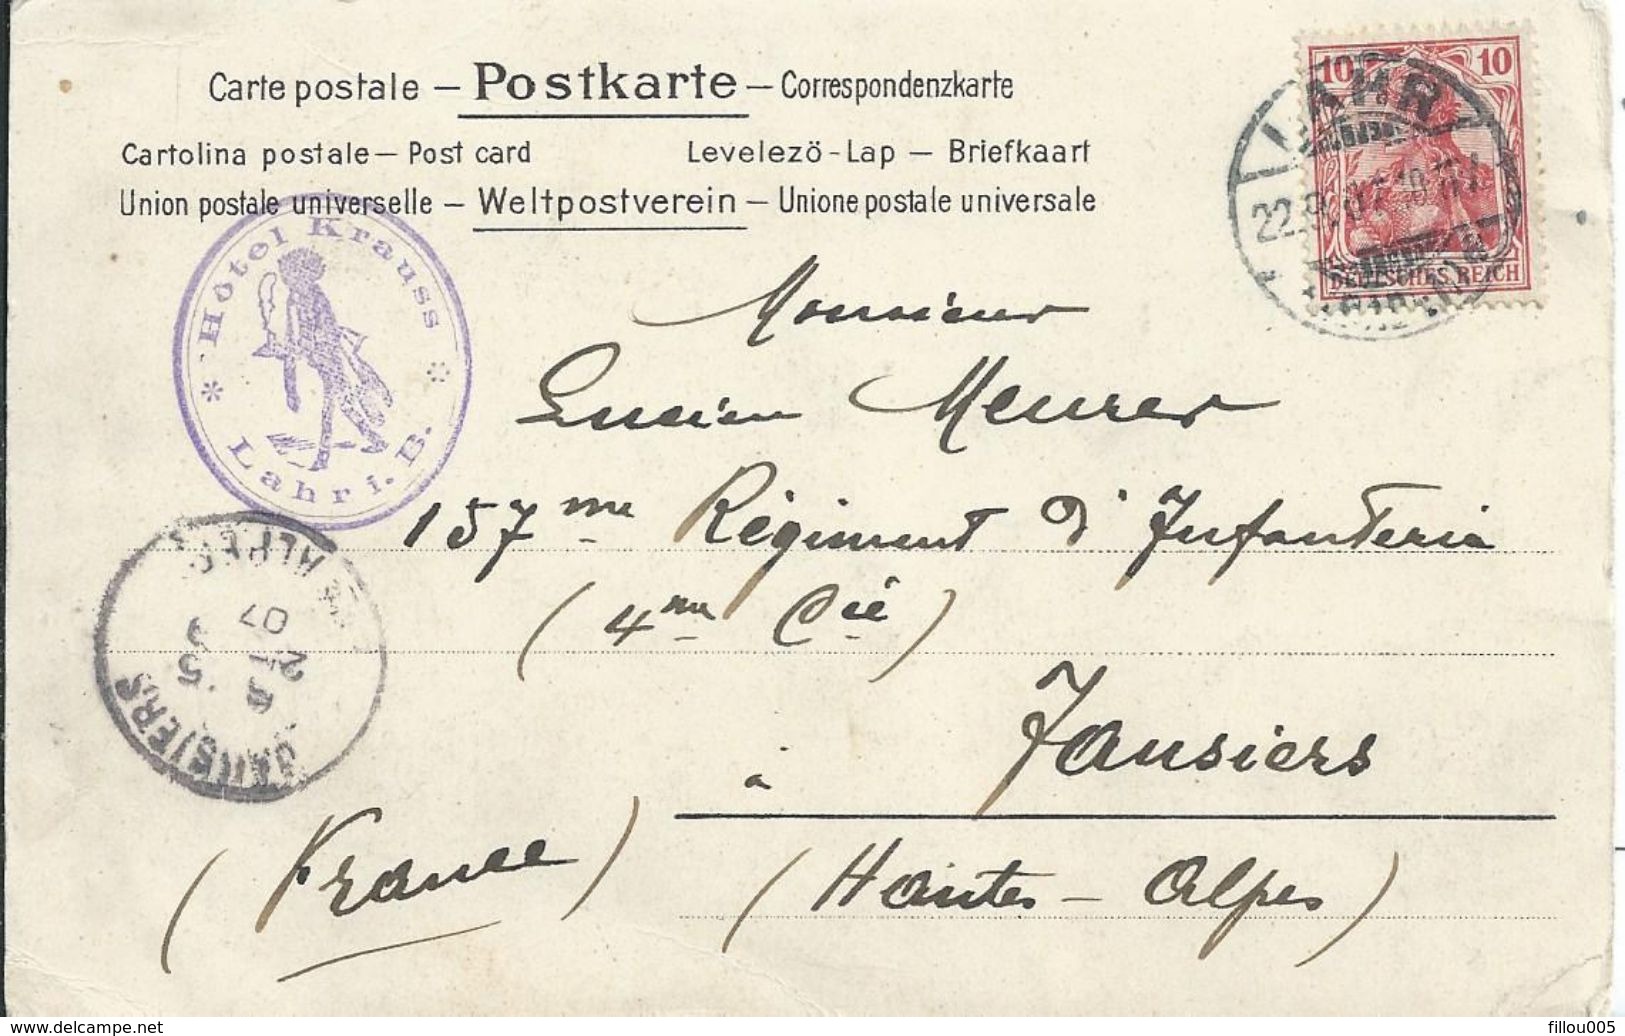 Carte postale – Postkarte – Correspondenzkarte
Cartolina postale – Post card Levelezö-Lap – Briefkaart
Union postale universelle – Weltpostverein – Unione postale universale
10 10
DEUTSCHES REICH
LAHR
22.9.07
* Hôtel Krauss *
Lahr i. B.
Monsieur
Lucien Meurer
157me Régiment d'Infanterie
(4me Cie)
à Jausiers
(Hautes-Alpes)
(France)
JAUSIERS
ALPES
25
9
07
www.delcampe.net
fillou005